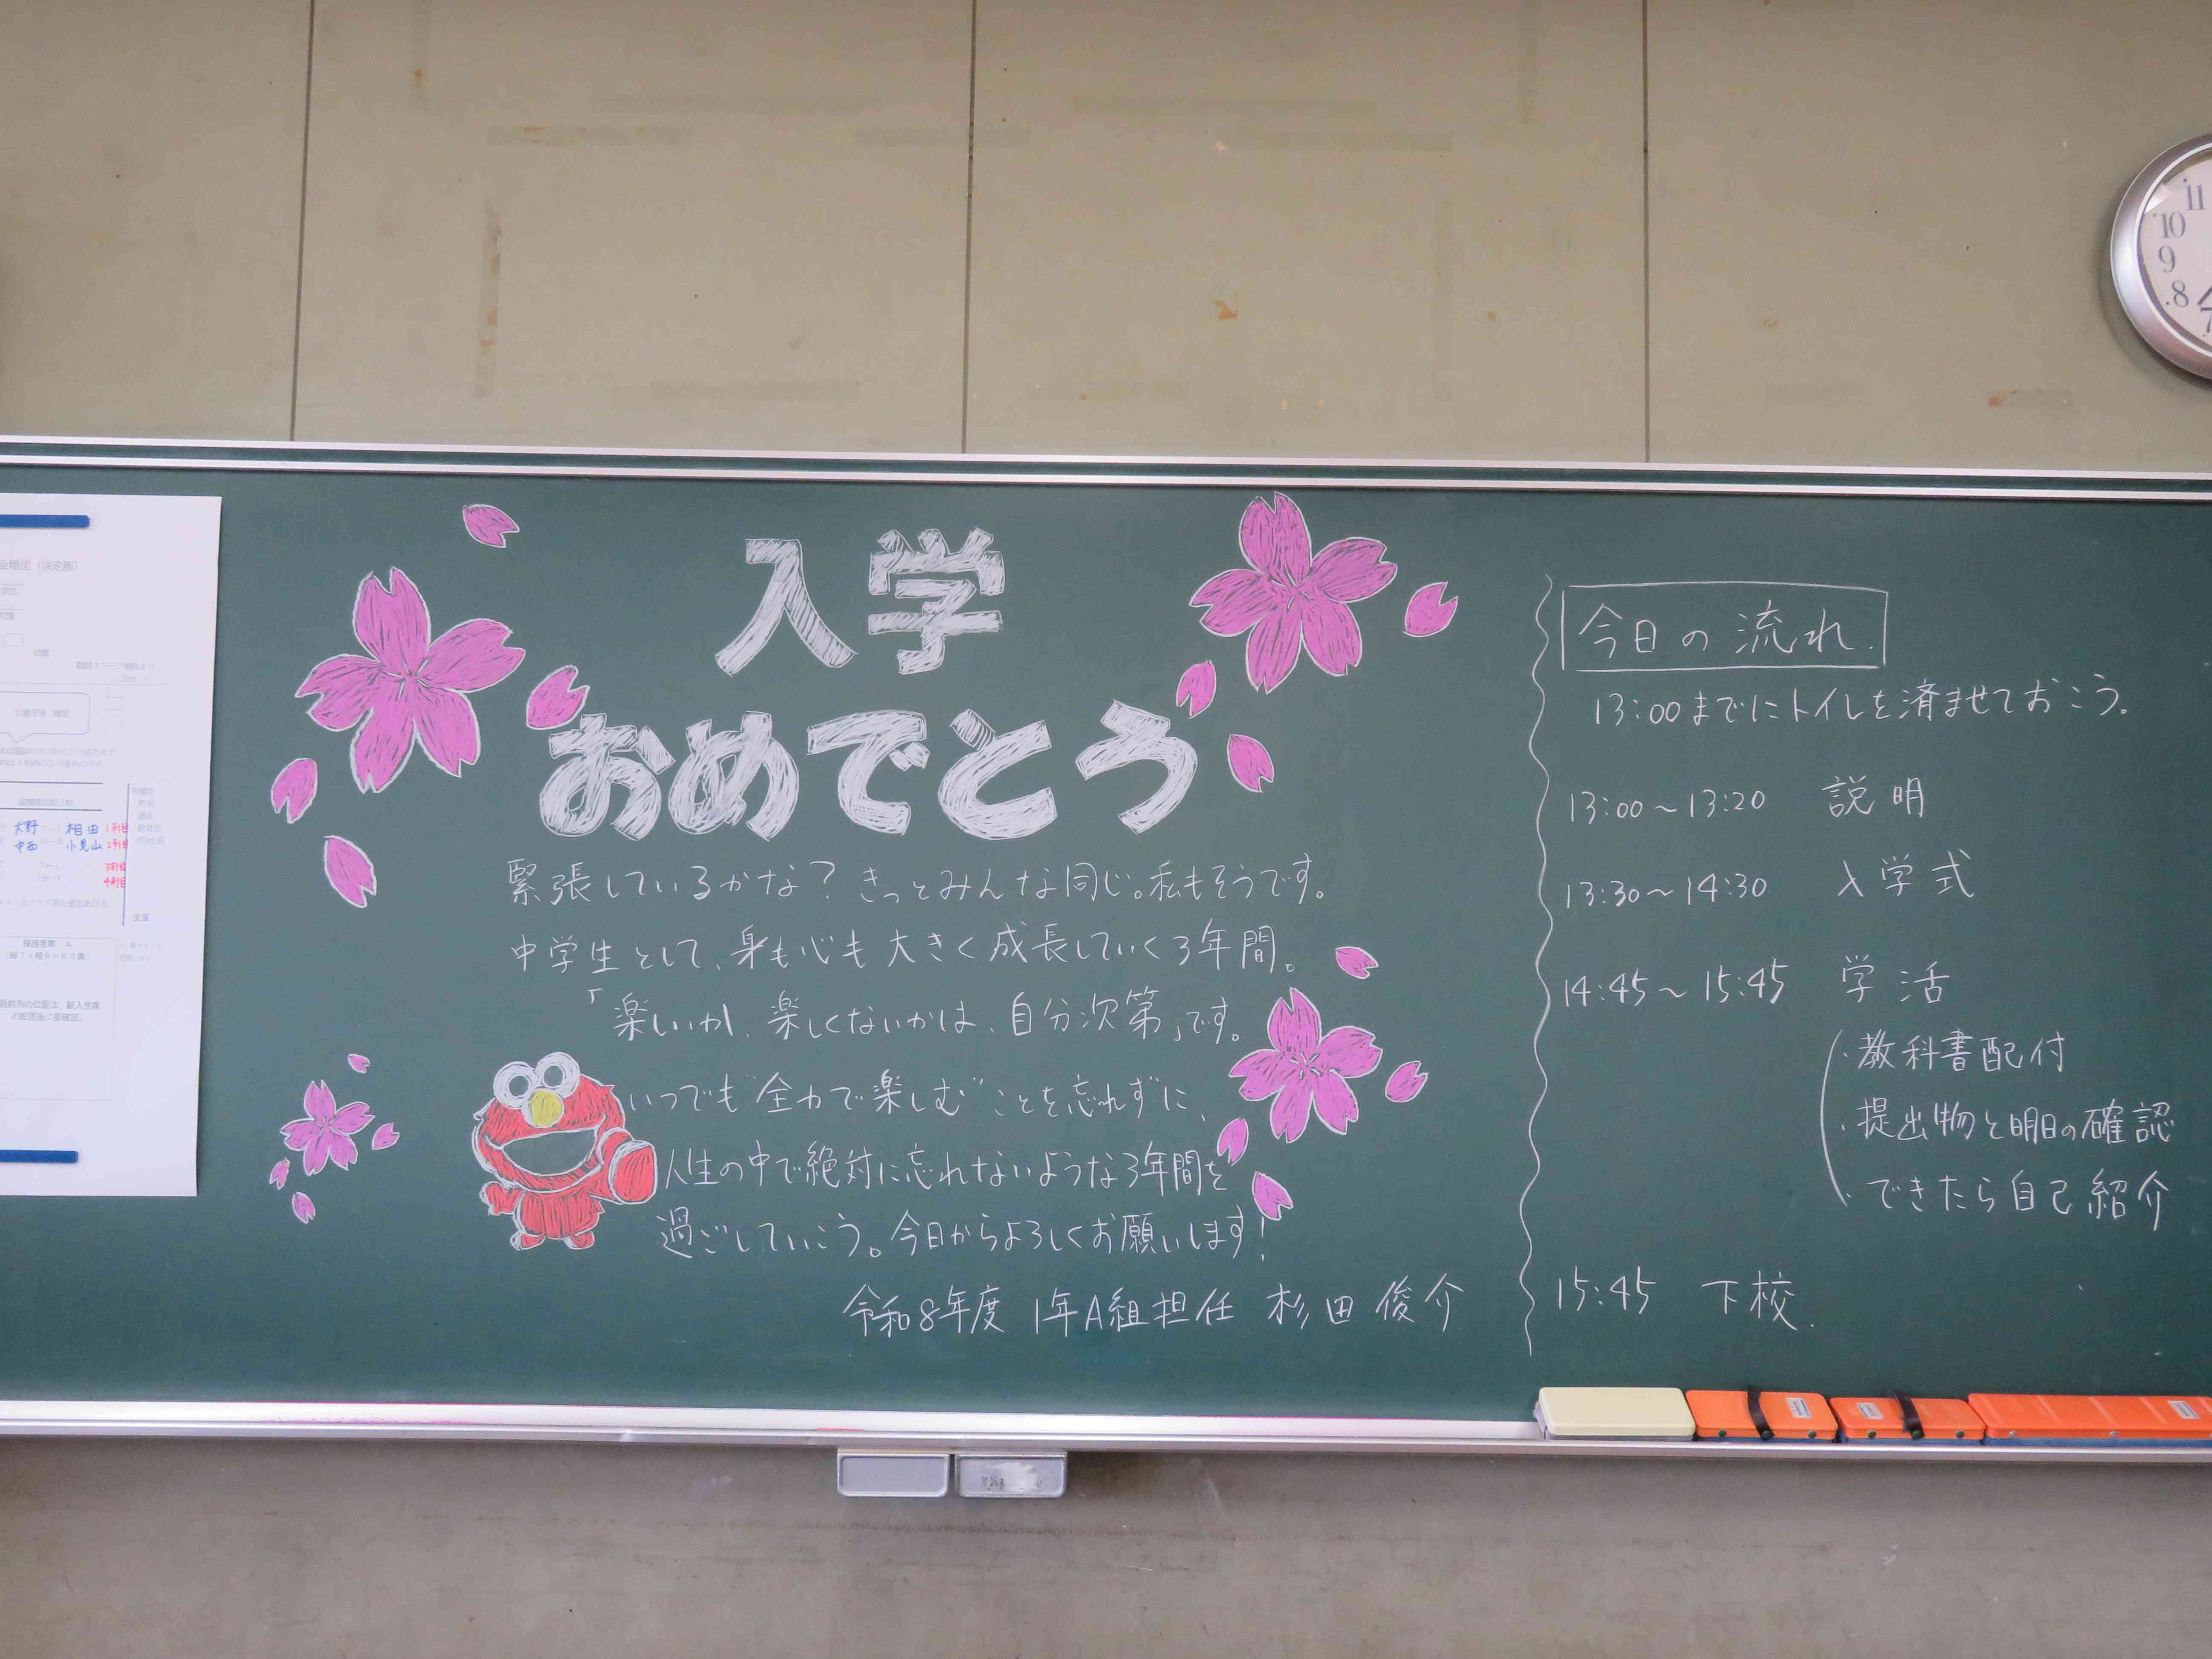 会場図（決定版）
大野 相田 1列目
中西 小見山 2列目
3列目
4列目
支援
保護者席 A
（縦7×横9＝63席）
最前列の位置は、新入生席
の配置後に要確認。
入学
おめでとう
緊張しているかな？きっとみんな同じ。私もそうです。
中学生として、身も心も大きく成長していく3年間。
「楽しいか、楽しくないかは、自分次第」です。
いつでも“全力で楽しむ”ことを忘れずに、
人生の中で絶対に忘れないような3年間を
過ごしていこう。今日からよろしくお願いします！
令和8年度 1年A組担任 杉田 俊介
今日の流れ.
13:00までにトイレを済ませておこう。
13:00～13:20 説明
13:30～14:30 入学式
14:45～15:45 学活
・教科書配付
・提出物と明日の確認
・できたら自己紹介
15:45 下校.
11
10
9
8
7